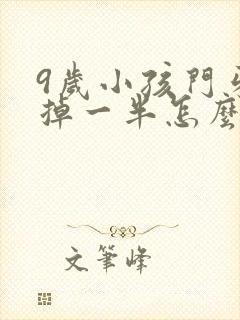 9歲小孩門牙
掉一半怎麼
文筆峰